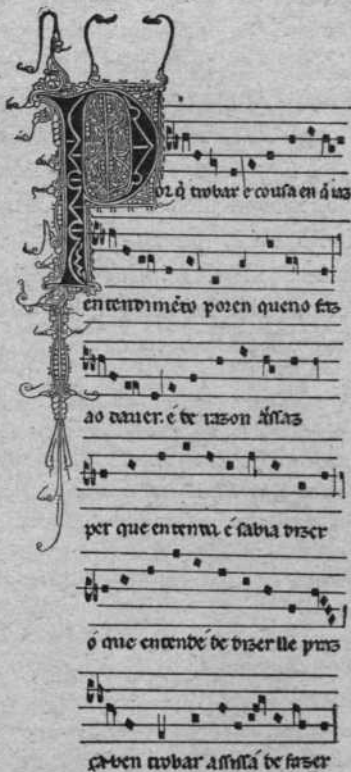 Por q̃ trobar e cousa en q̃ iaz
entendimẽto poren queno faz
ao dauer. é de razon assaz
per que entenda é sabia dizer
ó que entende de dizer lle praz
ca ben trobar assi s á de fazer